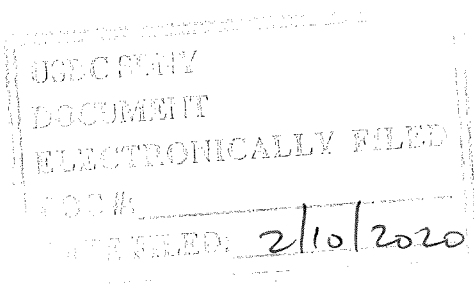 USDC SDNY
DOCUMENT
ELECTRONICALLY FILED
DOC #:
DATE FILED: 2/10/2020